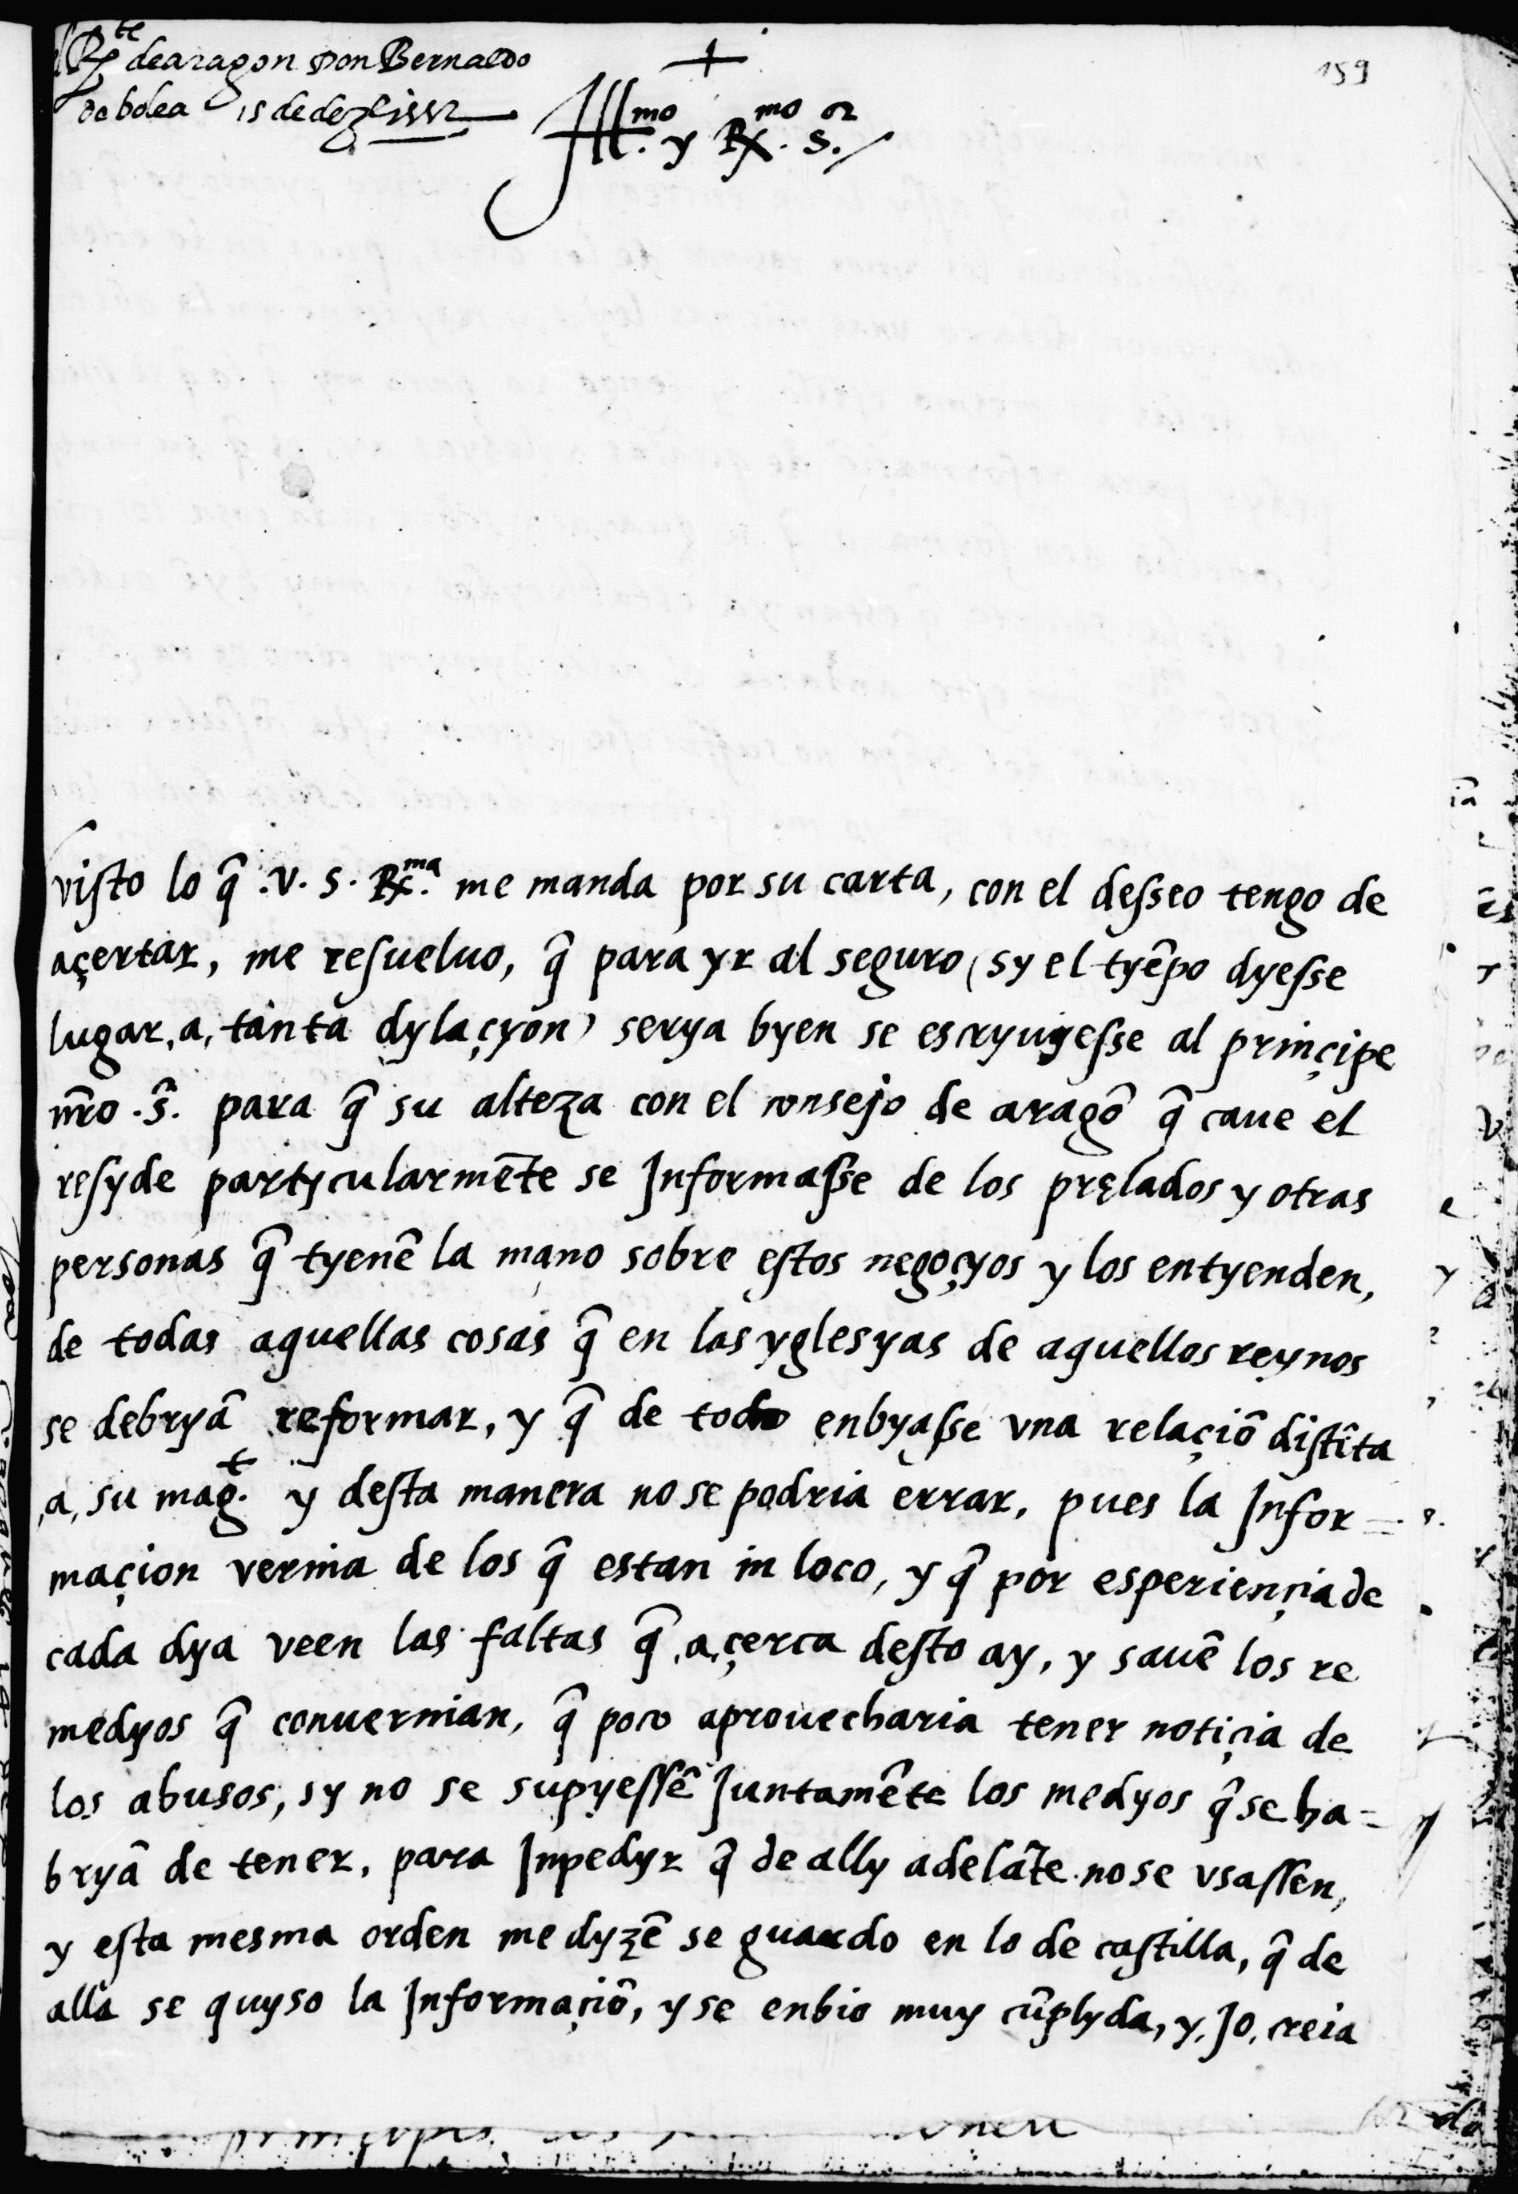 el Rte de aragon Don Bernaldo
de bolea 15 de deze 1552
+
159
Illmo. y Rmo. Sor.
visto lo q̃ .V. S. Rma. me manda por su carta, con el desseo tengo de
açertar, me resueluo, q̃ para yr al seguro (sy el tyẽpo dyesse
lugar, a, tanta dylaçyon) serya byen se escryuiesse al prinçipe
nr̃o .S̃. para q̃ su alteza con el consejo de aragõ q̃ caue el
resyde partycularmẽte se Informasse de los prelados y otras
personas q̃ tyenẽ la mano sobre estos negoçyos y los entyenden,
de todas aquellas cosas q̃ en las yglesyas de aquellos reynos
se debryã reformar, y q̃ de todo enbyasse vna relaçiõ distĩta
,a, su magt. y desta manera no se podria errar, pues la Infor=
maçion vernia de los q̃ estan in loco, y q̃ por esperiençia de
cada dya veen las faltas q̃ ,a,çerca desto ay, y sauẽ los re
medyos q̃ conuernian, q̃ poco aprouecharia tener notiçia de
los abusos, sy no se supyessẽ Juntamẽte los medyos q̃ se ha=
bryã de tener, para Inpedyr q̃ de ally adelãte no se vsassen,
y esta mesma orden me dyzẽ se guardo en lo de castilla, q̃ de
alla se quyso la Informaçiõ, y se enbio muy cũplyda, y, Jo, creia